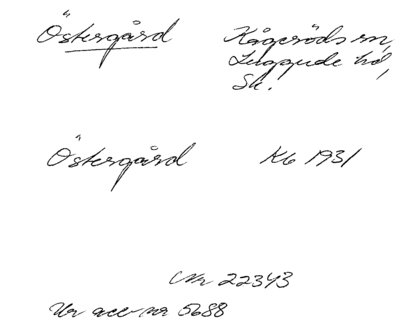 Östergård Kågeröds sn,
Luggude hd,
Sk.
Östergård Kb 1931
Nr 22343
Ur acc nr 5688